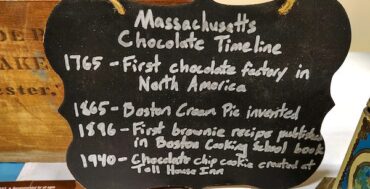 Massachusetts
Chocolate Timeline
1765 - First chocolate factory in
North America
1865 - Boston Cream Pie invented
1896 - First brownie recipe published
in Boston Cooking School book
1940 - Chocolate chip cookie created at
Toll House Inn